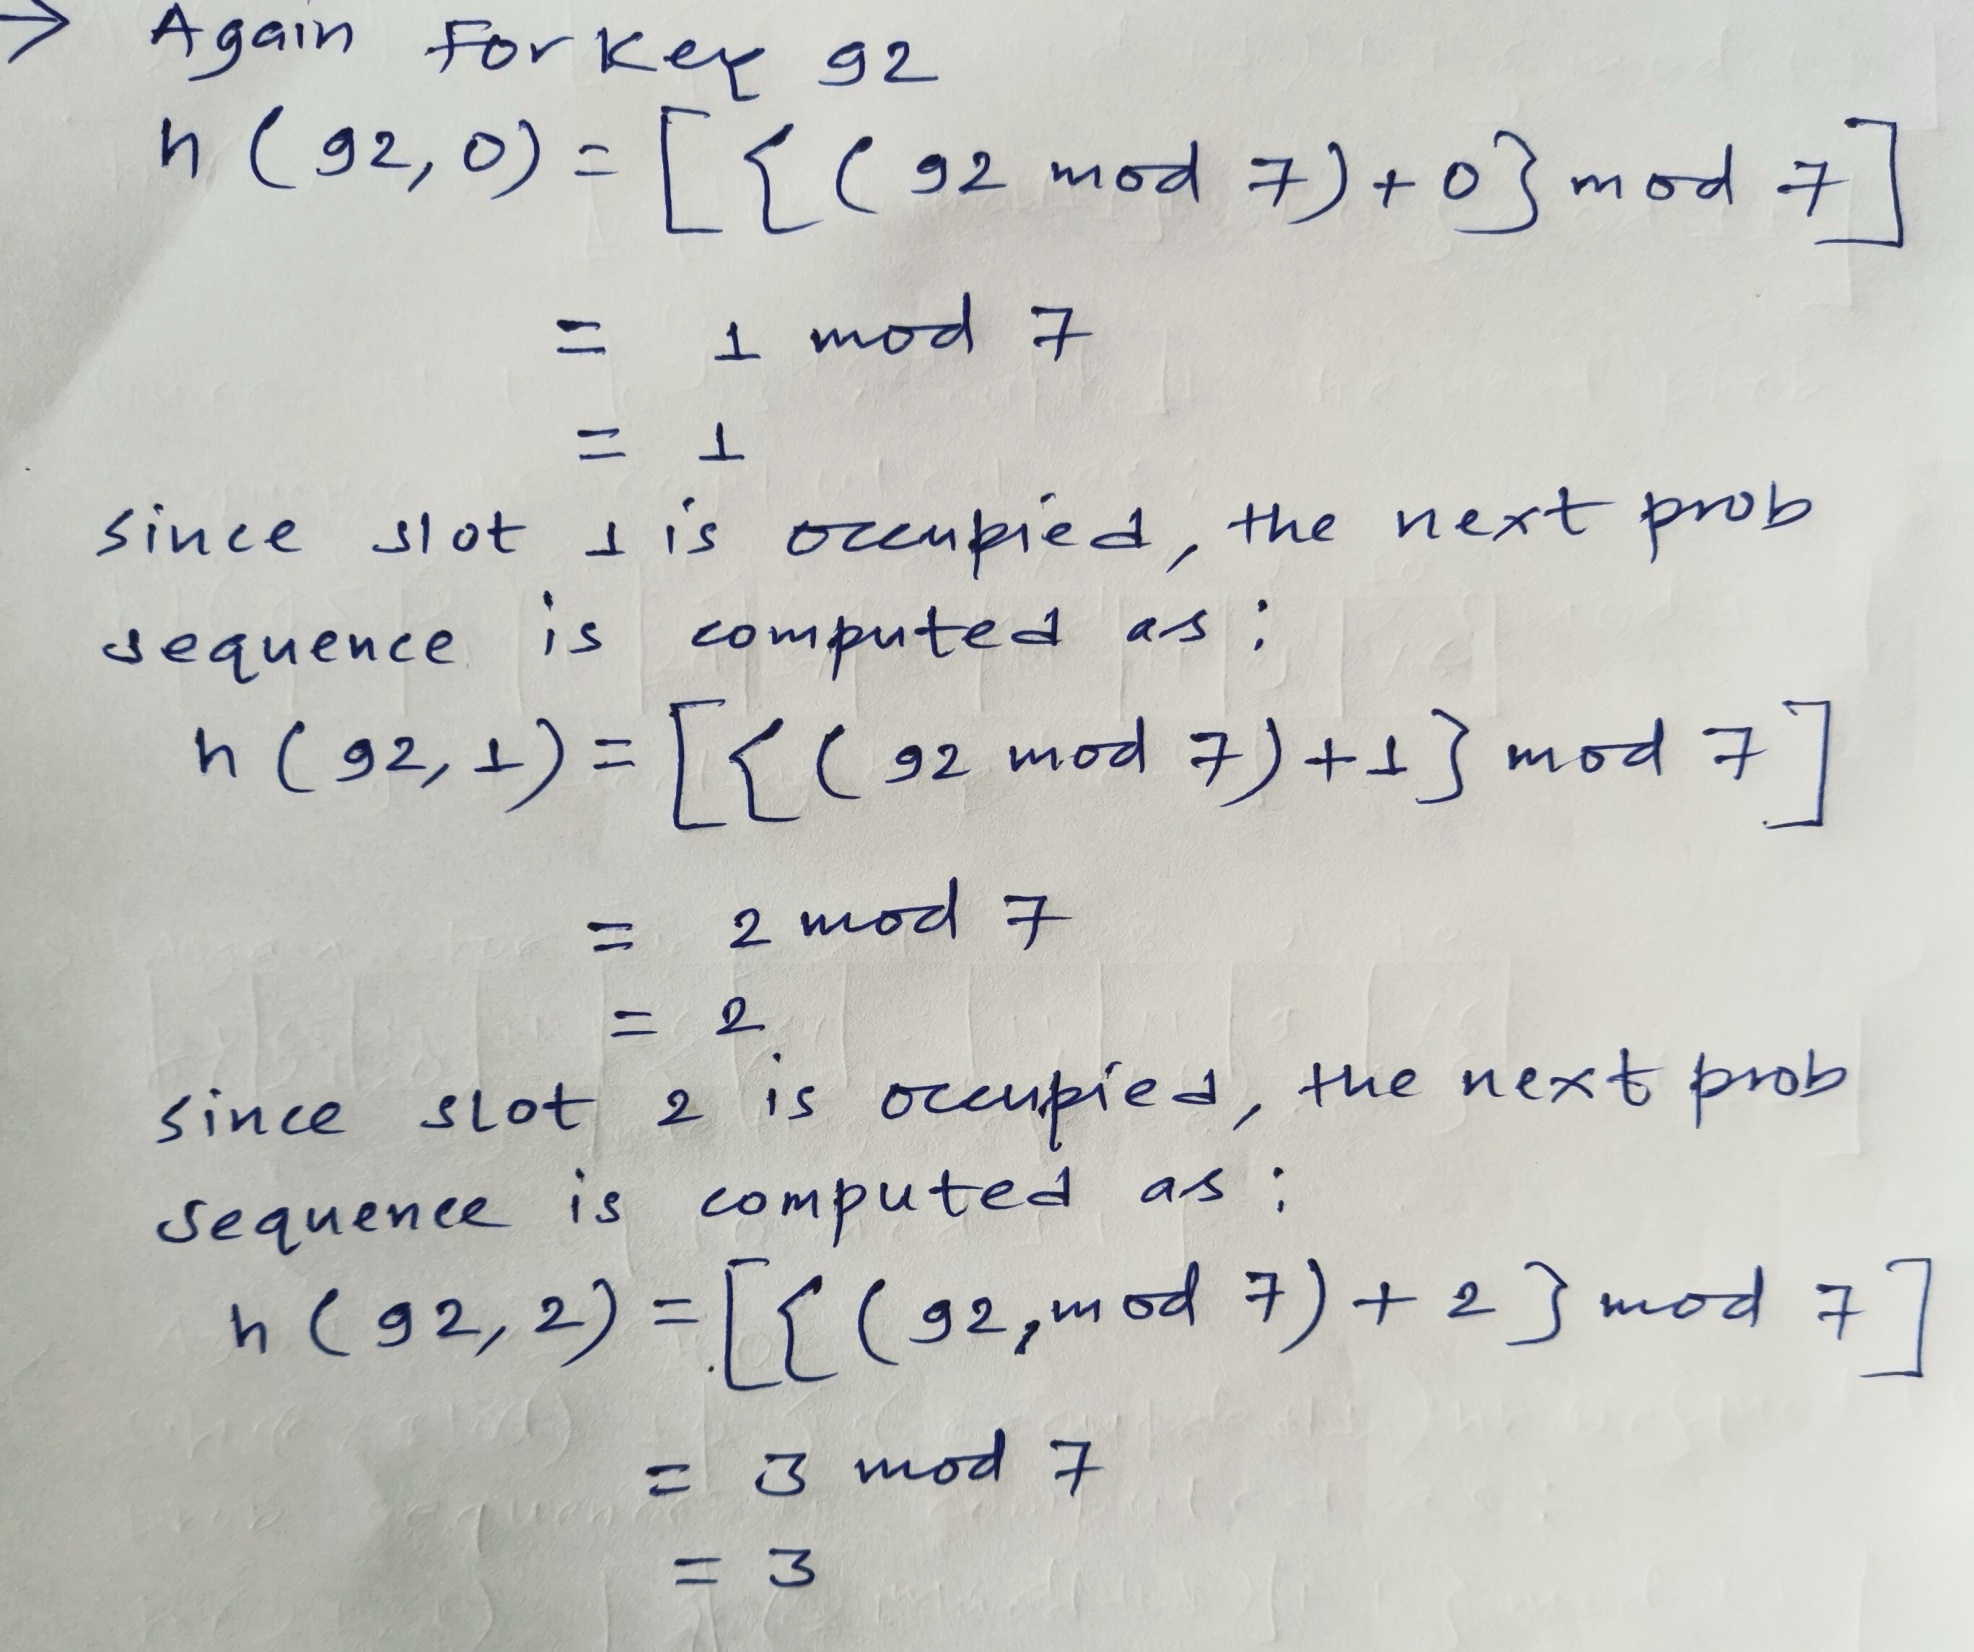 → Again For Key 92
h (92,0) = [{(92 mod 7)+0} mod 7]
= 1 mod 7
= 1
since slot 1 is occupied, the next prob
sequence is computed as :
h (92,1) = [{(92 mod 7)+1} mod 7]
= 2 mod 7
= 2
since slot 2 is occupied, the next prob
sequence is computed as :
h (92,2) = [{(92,mod 7)+2} mod 7]
= 3 mod 7
= 3